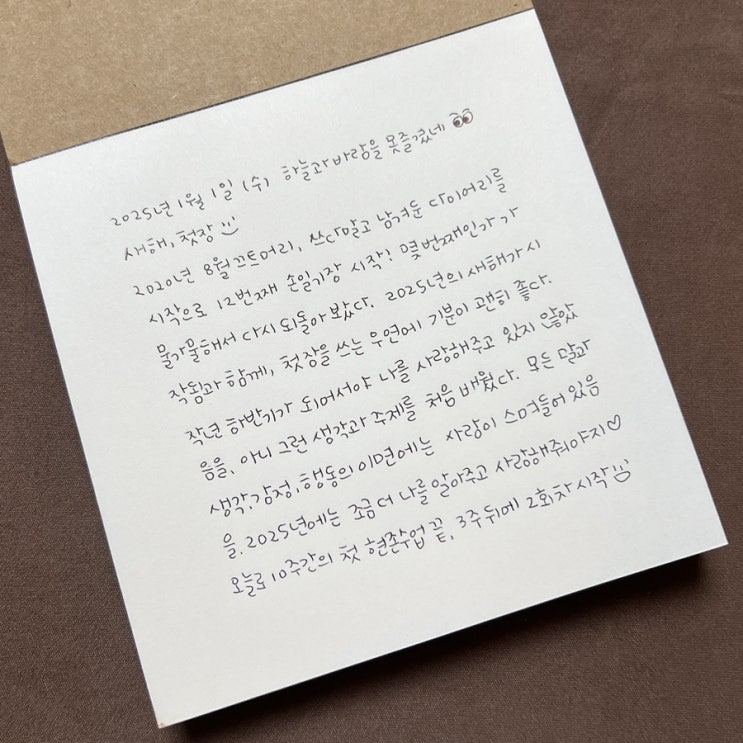 2025년 1월 1일 (수) 하늘과 바람을 못즐겼네 👀
새해, 첫장 :)
2020년 8월 끄트머리, 쓰다말고 남겨둔 다이어리를
시작으로 12번째 손일기장 시작! 몇번째인가 가
물가물해서 다시 되돌아 봤다. 2025년의 새해가 시
작됨과 함께, 첫장을 쓰는 우연에 기분이 괜히 좋다.
작년 하반기가 되어서야 나를 사랑해주고 있지 않았
음을, 아니 그런 생각과 주제를 처음 배웠다. 모든 말과
생각, 감정, 행동의 이면에는 사랑이 스며들어 있음
을. 2025년에는 조금 더 나를 알아주고 사랑해줘야지♡
오늘로 10주간의 첫 현존수업 끝, 3주 뒤에 2회차 시작 :)